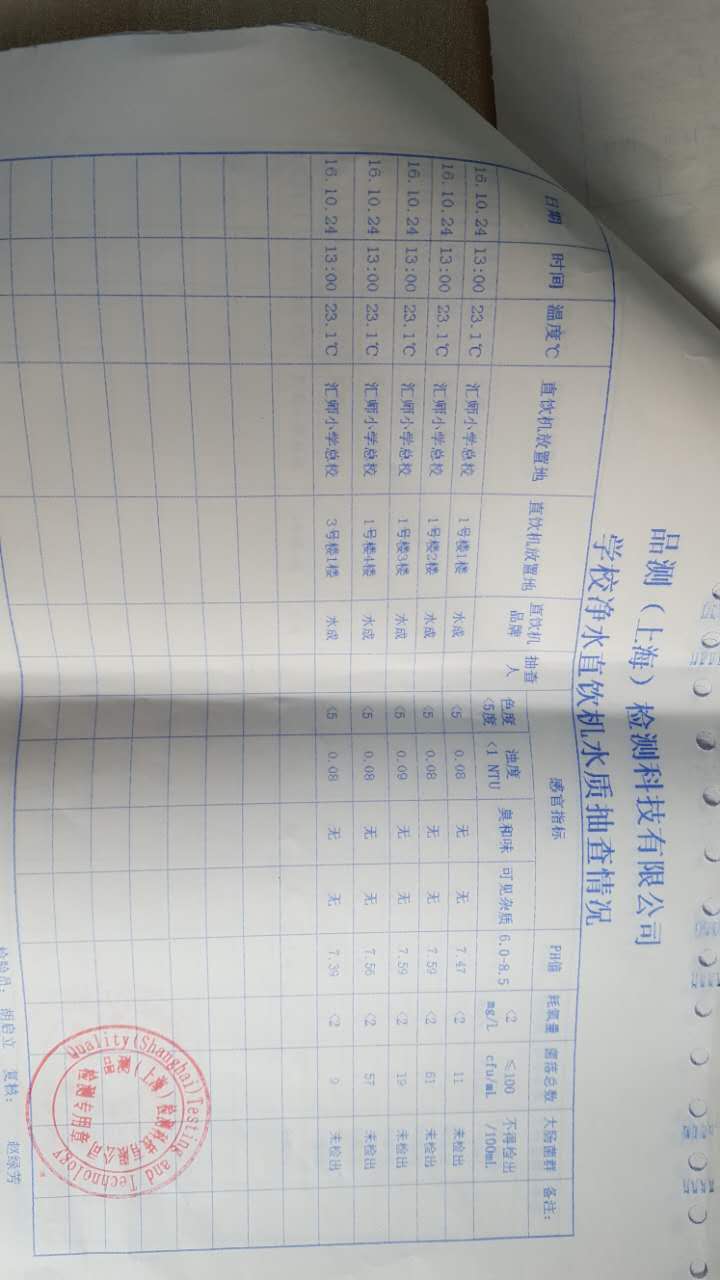 品测（上海）检测科技有限公司
学校净水直饮机水质抽查情况
日期 时间 温度℃ 直饮机放置地 直饮机放置地 直饮机品牌 抽查人 感官指标 PH值 耗氧量 菌落总数 大肠菌群 备注:
色度 浊度 臭和味 可见杂质 6.0-8.5 <2 ≤100 不得检出
<5度 <1 NTU mg/L cfu/mL /100mL
16.10.24 13:00 23.1℃ 汇师小学总校 1号楼1楼 水成 <5 0.08 无 无 7.47 <2 11 未检出
16.10.24 13:00 23.1℃ 汇师小学总校 1号楼2楼 水成 <5 0.08 无 无 7.59 <2 61 未检出
16.10.24 13:00 23.1℃ 汇师小学总校 1号楼3楼 水成 <5 0.09 无 无 7.59 <2 19 未检出
16.10.24 13:00 23.1℃ 汇师小学总校 1号楼4楼 水成 <5 0.08 无 无 7.56 <2 57 未检出
16.10.24 13:00 23.1℃ 汇师小学总校 3号楼1楼 水成 <5 0.08 无 无 7.39 <2 9 未检出
Quality(Shanghai)Testing and Technology
品测（上海）检测科技有限公司
检测专用章
检验员: 胡启立 复核: 赵绿芳